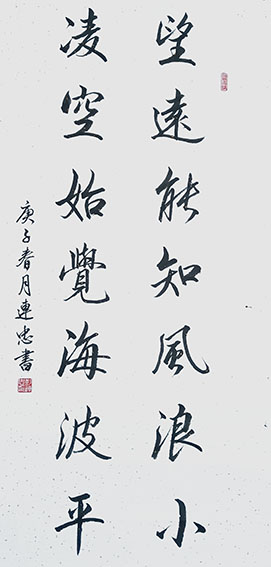 望遠能知風浪小
凌空始覺海波平
庚子春月連忠書